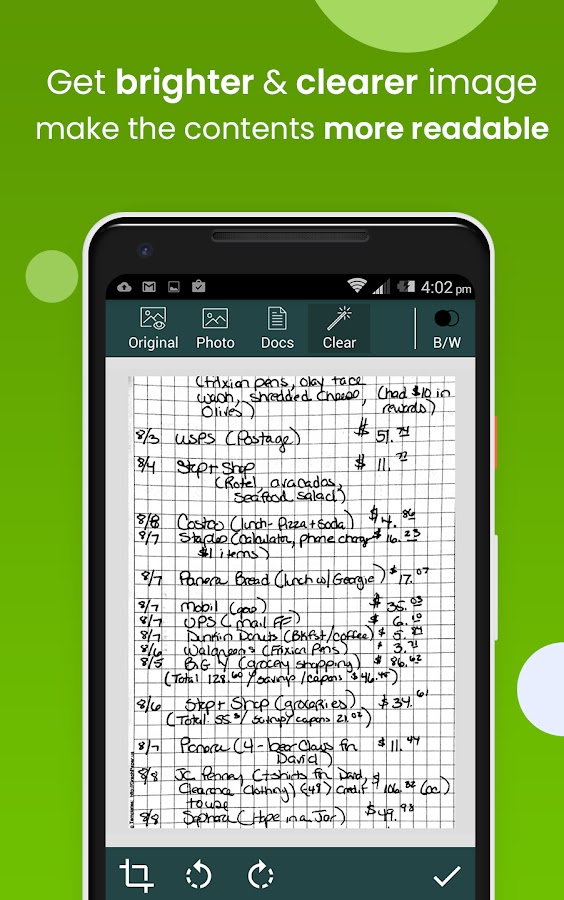 Get brighter & clearer image
make the contents more readable
4:02 pm
Original Photo Docs Clear B/W
(Frixion pens, olay face
wash, shredded cheese, (had $10 in
Olives) rewards)
8/3 USPS (Postage) $ 51.74
8/4 Stop + Shop $ 11.77
(Rotel, avacados,
seafood salad)
8/8 Costco (lunch - Pizza + Soda) $ 14.86
8/7 Staples (Calculator, phone charger $ 16.23
$1 items)
8/7 Panera Bread (lunch w/ Georgie) $ 17.07
8/7 Mobil (gas) $ 35.03
8/7 UPS (mail FF) $ 6.10
8/7 Dunkin Donuts (Bkfst/coffee) $ 5.
8/6 Walgreens (Frixion Pens) $ 3.71
8/5 BIG Y (grocery shopping) $ 86.62
(Total 128.60 / savings / coupons $ 46.45)
8/6 Stop + Shop (groceries) $ 34.61
(Total 55. / savings / coupons 21.02)
8/7 Panera (4 - bear claws for $ 11.44
David)
8/8 JC Penney (t-shirts for David, $
Clearance Clothing) (48) credit 106.32 (cc)
to use
8/8 Sephora (Hope in a Jar) $ 49.98